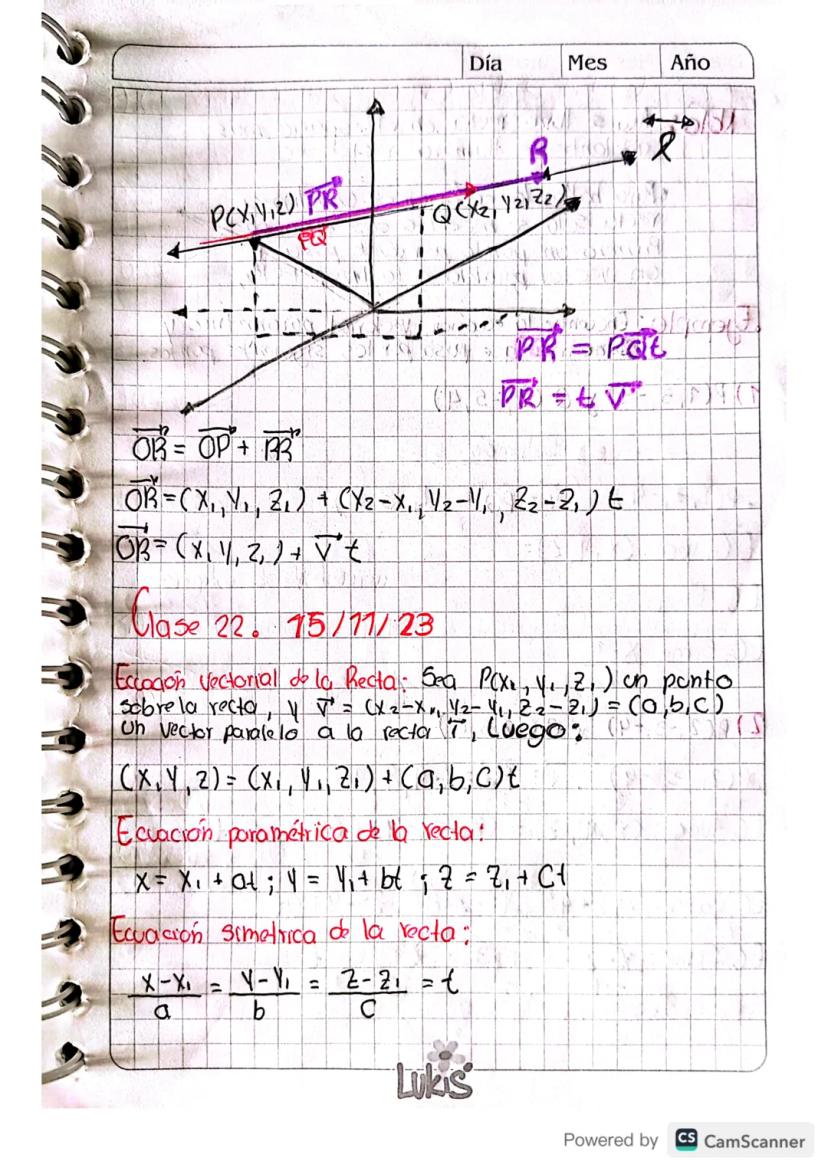 Día Mes Año
R
ℓ
P(X,Y,Z) PR
Q(X2, Y2, Z2)
PQ
PR = PQt
PR = t V
OR = OP + PR
OR = (X1, Y1, Z1) + (X2-X1, Y2-Y1, Z2-Z1) t
OR = (X, Y, Z,) + V t
Clase 22. 15/11/23
Ecuación vectorial de la Recta: Sea P(X1, Y1, Z1) un punto
sobre la recta, y V = (X2-X1, Y2-Y1, Z2-Z1) = (a,b,c)
un vector paralelo a la recta, Luego:
(X,Y,Z) = (X1, Y1, Z1) + (a,b,c)t
Ecuación paramétrica de la recta:
X = X1 + at ; Y = Y1 + bt ; Z = Z1 + Ct
Ecuación simetrica de la recta:
X-X1/a = Y-Y1/b = Z-Z1/C = t
LUKIS
Powered by CS CamScanner